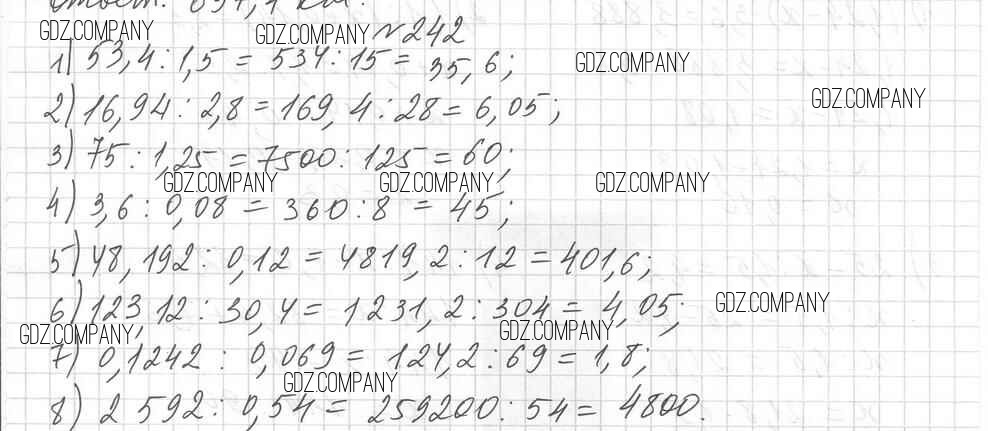 Ответ: 891,1 км.
GDZ.COMPANY GDZ.COMPANY №242
1) 53,4 : 1,5 = 534 : 15 = 35,6; GDZ.COMPANY
GDZ.COMPANY
2) 16,94 : 2,8 = 169,4 : 28 = 6,05;
3) 75 : 1,25 = 7500 : 125 = 60;
GDZ.COMPANY GDZ.COMPANY GDZ.COMPANY
4) 3,6 : 0,08 = 360 : 8 = 45;
5) 48,192 : 0,12 = 4819,2 : 12 = 401,6;
6) 123,12 : 30,4 = 1231,2 : 304 = 4,05; GDZ.COMPANY
GDZ.COMPANY GDZ.COMPANY
7) 0,1242 : 0,069 = 124,2 : 69 = 1,8;
GDZ.COMPANY
8) 2 592 : 0,54 = 259200 : 54 = 4800.